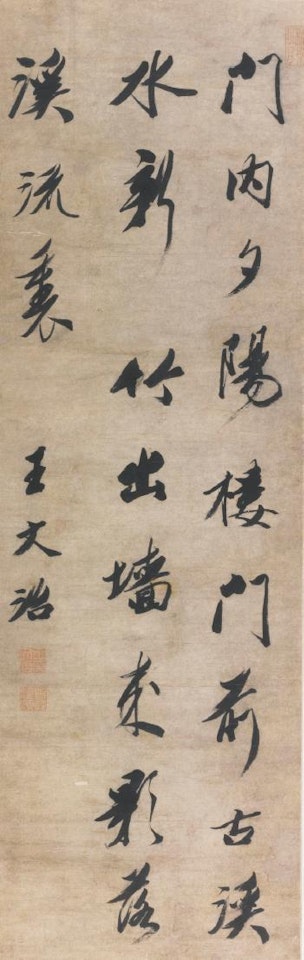 門內夕陽樓門前古溪
水新竹出墻來影落
溪流裏 王文治